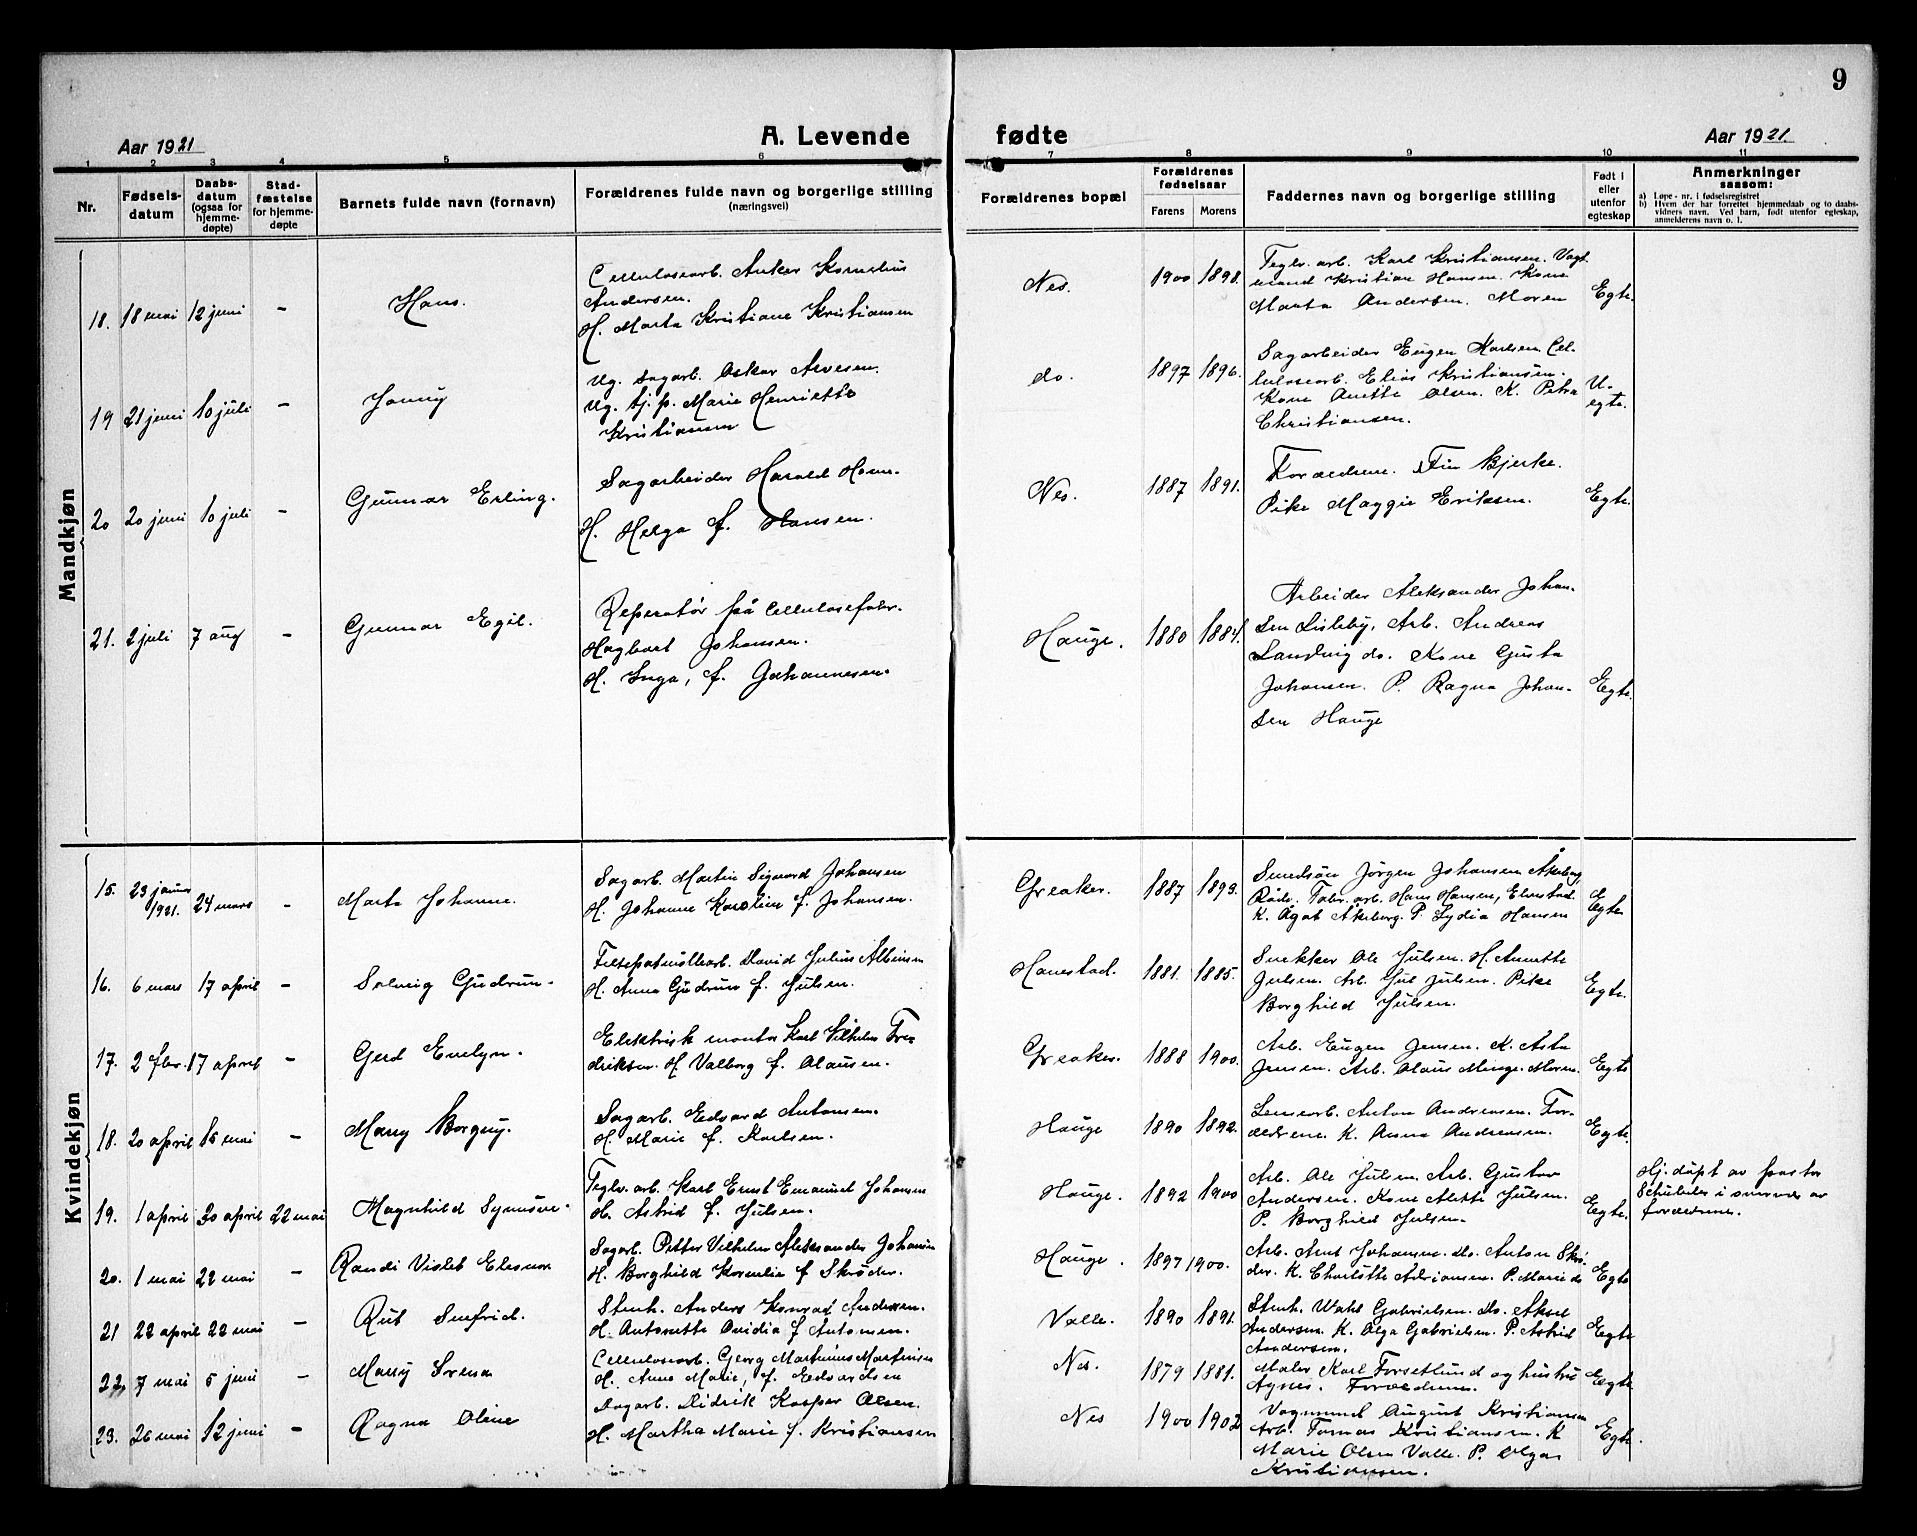 9
Aar 1921
A. Levende
fødte
Aar 1921.
1 2 3 4 5 6 7 8 9 10 11
Nr.
Fødsels-
datum
Daabs-
datum
(ogsaa for
hjemme-
døpte)
Stad-
fæstelse
for hjemme-
døpte
Barnets fulde navn (fornavn)
Forældrenes fulde navn og borgerlige stilling
(næringsvei)
Forældrenes bopæl
Forældrenes
fødselsaar
Farens
Morens
Faddernes navn og borgerlige stilling
Født i
eller
utenfor
egteskap
Anmerkninger
saasom:
a) Løpe-nr. i fødselsregistret
b) Hvem der har forrettet hjemmedaab og to daabs-
vidners navn. Ved barn, født utenfor egteskap,
anmelderens navn o. l.
Mandkjøn
18. 18 mai 12 juni - Hans.
Cellulosearb. Anker Kornelius
Andersen.
H. Marta Kristiane Kristiansen
Nes. 1900 1898.
Teglv. arb. Karl Kristiansen. Vagt
mand Kristian Hansen. Kone
Marta Andersen. Moren
Egte.
19 21 juni 10 juli - Jonny
Ug. sagarb. Oskar Arvesen.
Ug. tj. p. Marie Henriette
Kristiansen
do. 1897 1896.
Sagarbeider Eugen Karlsen. Cel-
lulosearb. Elias Kristiansen.
Kone Anette Olsen. K. Petra
Christiansen.
U.
egte.
20 20 juni 10 juli - Gunnar Erling.
Sagarbeider Harald Horn.
H. Helga f. Hansen.
Nes. 1887 1891.
Forældrene. Fin Bjerke.
Pike Maggie Eriksen.
Egte.
21. 2 juli 7 aug - Gunnar Egil.
Reperatør på Cellulosefabr.
Hagbart Johansen.
H. Inga, f. Johannesen.
Hauge. 1880 1884.
Arbeider Aleksander Johan-
sen Lisleby, Arb. Andreas
Landvig do. Kone Gusta
Johansen. P. Ragna Johan-
sen Hauge
Egte.
Kvindekjøn
15. 23 januar 1921. 24 mars - Marta Johanne.
Sagarb. Martin Sigvard Johansen
H. Johanne Karoline f. Johansen.
Greaker. 1887 1893.
Jørgen Johansen Åkeberg,
Råde. Fabr. arb. Hans Hansen,
K. Ågot Åkeberg. P. Lydia Hansen
Egte
16. 6 mars 17 april - Solveig Gudrun.
Feltspatmøllearb. David Julius Albinsen
H. Anna Gudrun f. Julsen.
Hanestad. 1881. 1885.
Snekker Ole Julsen. H. Annette
Julsen. Arb. Jul Julsen. Pike
Borghild Julsen.
Egte.
17. 2 fbr. 17 april - Gerd Evelyn.
Elektrisk montør Karl Vilhelm Fre
driksen. H. Valborg f. Olausen.
Greaker. 1888 1900.
Arb. Eugen Jensen. K. Asta
Jensen. Arb. Olaus Minge. Moren.
Egte
18. 20 april 15 mai - Mary Borgny.
Sagarb. Edvard Antonsen.
H. Marie f. Karlsen.
Hauge 1890 1892.
Lensearb. Anton Andreasen. For-
ældrene. K. Anna Andreasen.
Egte.
19. 1 april 30 april 22 mai Magnhild Synnøve.
Teglv. arb. Karl Ernst Emanuel Johansen
H. Astrid f. Julsen.
Hauge. 1892 1900
Arb. Ole Julsen. Arb. Gustav
Andersen. Kone Alette Julsen.
P. Borghild Julsen.
Egte.
Hj. døpt av pastor
i nærvær av
forældrene.
20. 1 mai 22 mai - Randi Violet Elesnor
Sagarb. Petter Vilhelm Aleksander Johansen
H. Borghild Kornelie f Skrøder.
Hauge. 1897 1900.
Arb. Arnt Johansen. do. Anton Skrø-
der. K. Charlotte Adriansen. P. Marie do
Egte
21 22 april 22 mai - Rut Senfrid.
Stenh. Anders Konrad Andersen.
H. Antonette Ovidia f Antonsen.
Valle. 1890 1891.
Stenh. Wahl Gabrielsen. Do. Aksel
Andersen. K. Olga Gabrielsen. P. Astrid
Andersen.
Egte
22, 7 mai 5 juni - Mary Irena
Cellulosearb. Georg Martinius Martinsen
H. Anne Marie, f. Edvardsen
Nes. 1879 1881.
Maler Karl Forsetlund og hustru
Agnes. Forældrene.
Egte.
23. 26 mai 12 juni - Ragna Oline
Sagarb. Didrik Kasper Olsen.
H. Martha Marie f. Kristiansen
Nes 1900 1902
Vognmand August Kristiansen
Arb. Tomas Kristiansen. K
Marie Olsen Valle. P. Olga
Kristiansen.
Egte.